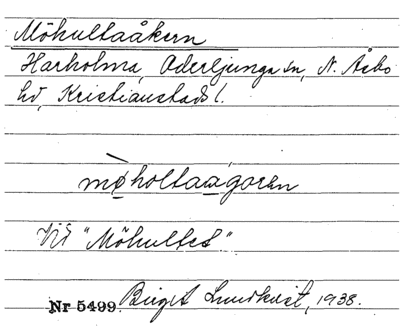 Möhultaåkern
Harholma, Oderljunga sn, N. Åsbo
hd, Kristianstads l.
mø̀holtaágoren
Vid "Möhultet"
Nr 5499. Birgit Lundkvist, 1938.